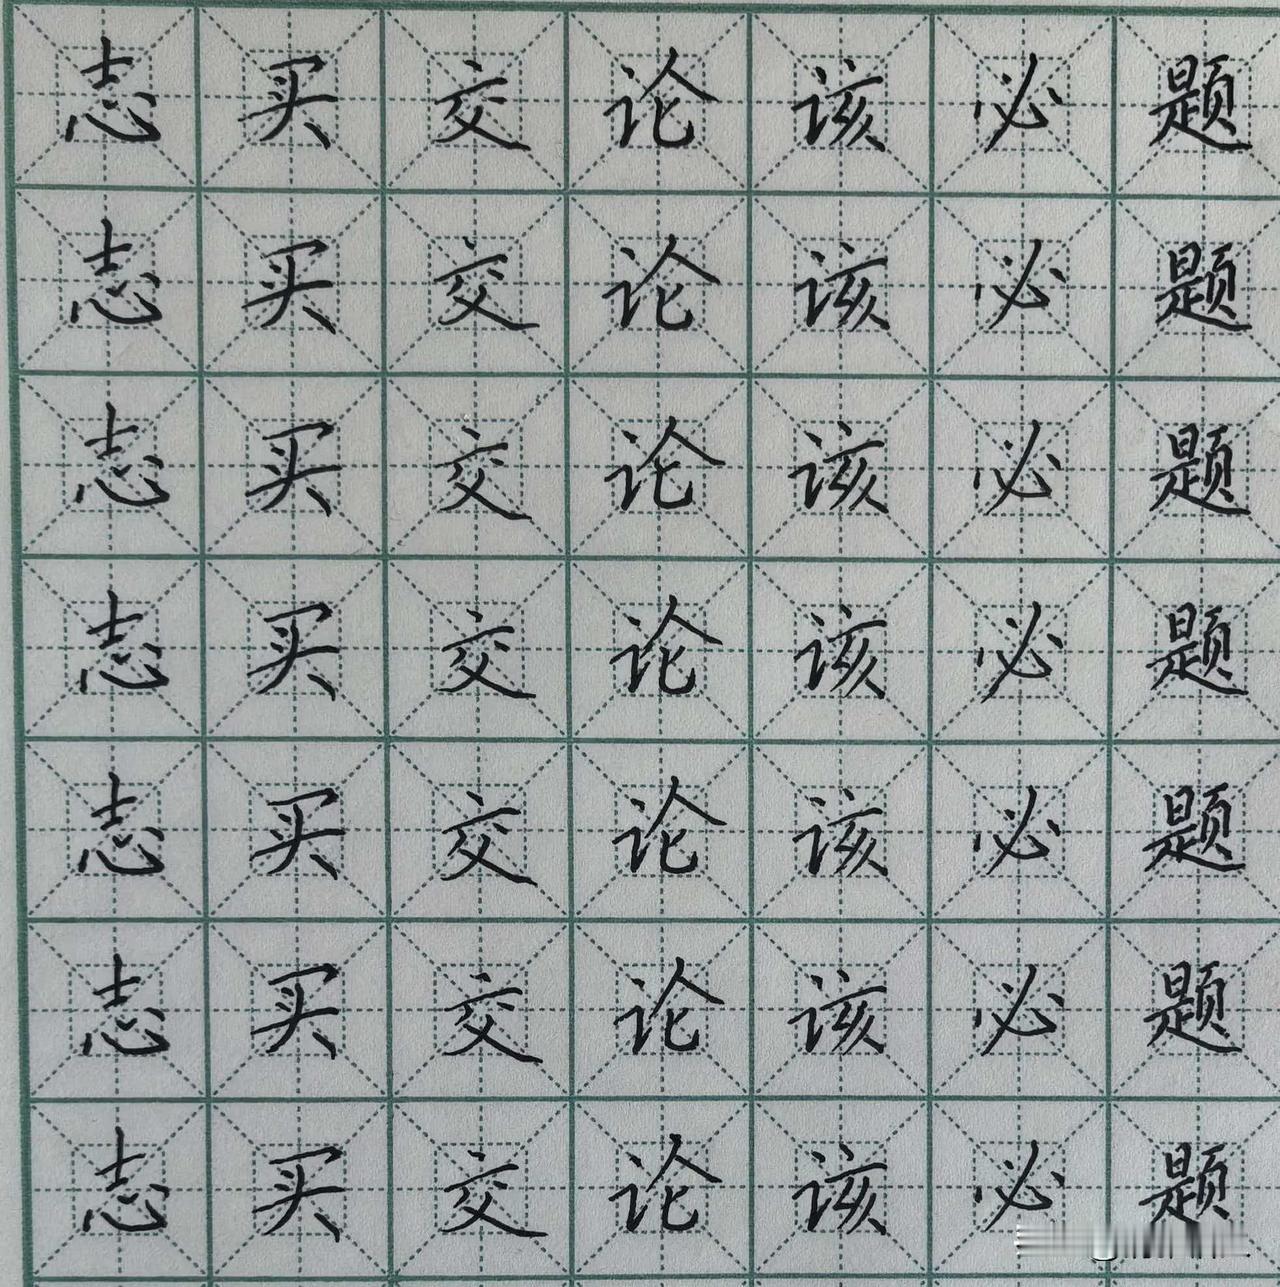 志买交论该必题
志买交论该必题
志买交论该必题
志买交论该必题
志买交论该必题
志买交论该必题
志买交论该必题